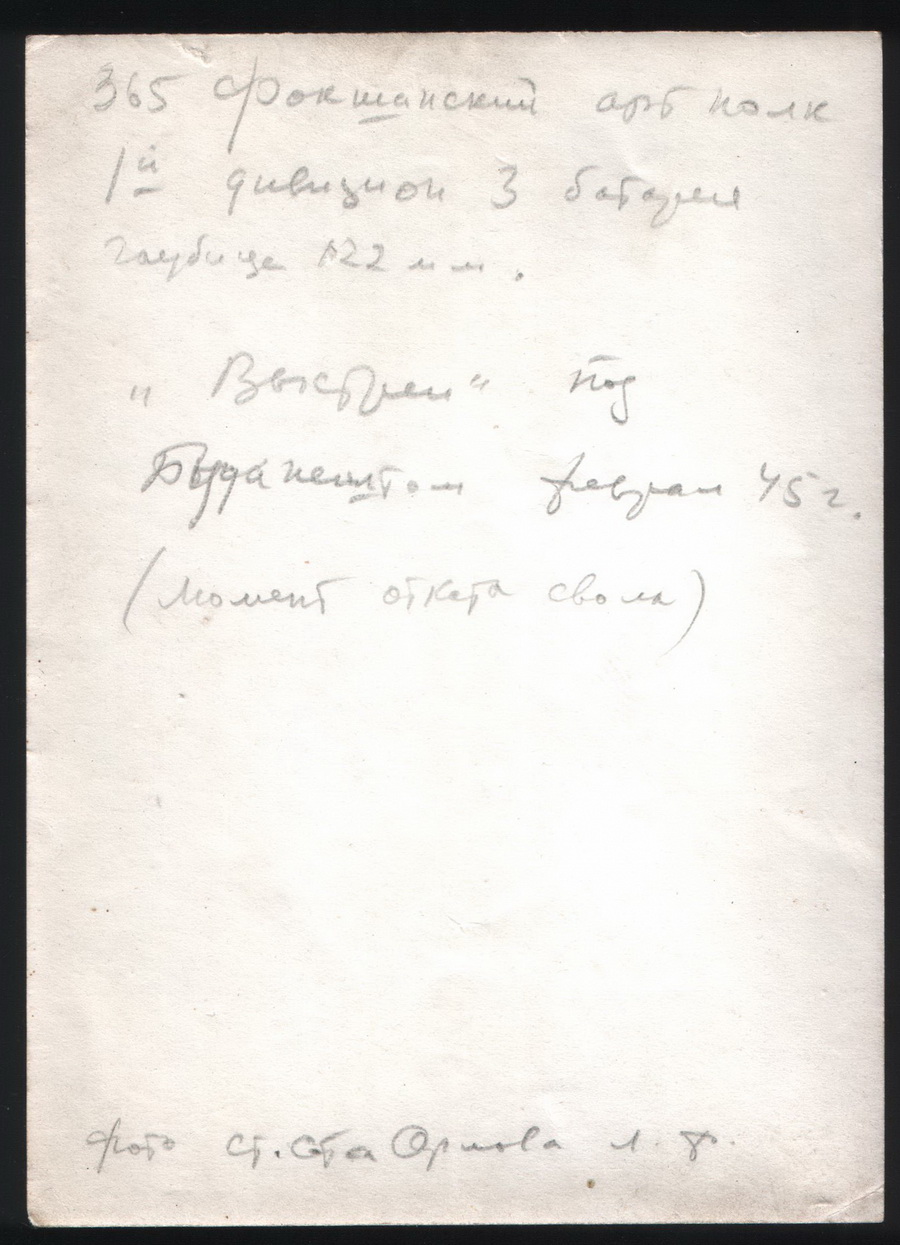 365 Фокшанский арт полк
1й дивизион 3 батарея
гаубица 122 мм.
„Выстрел“ под
Будапештом феврал 45 г.
(момент отката ствола)
фото ст. с-та Орлова Л. Ф.